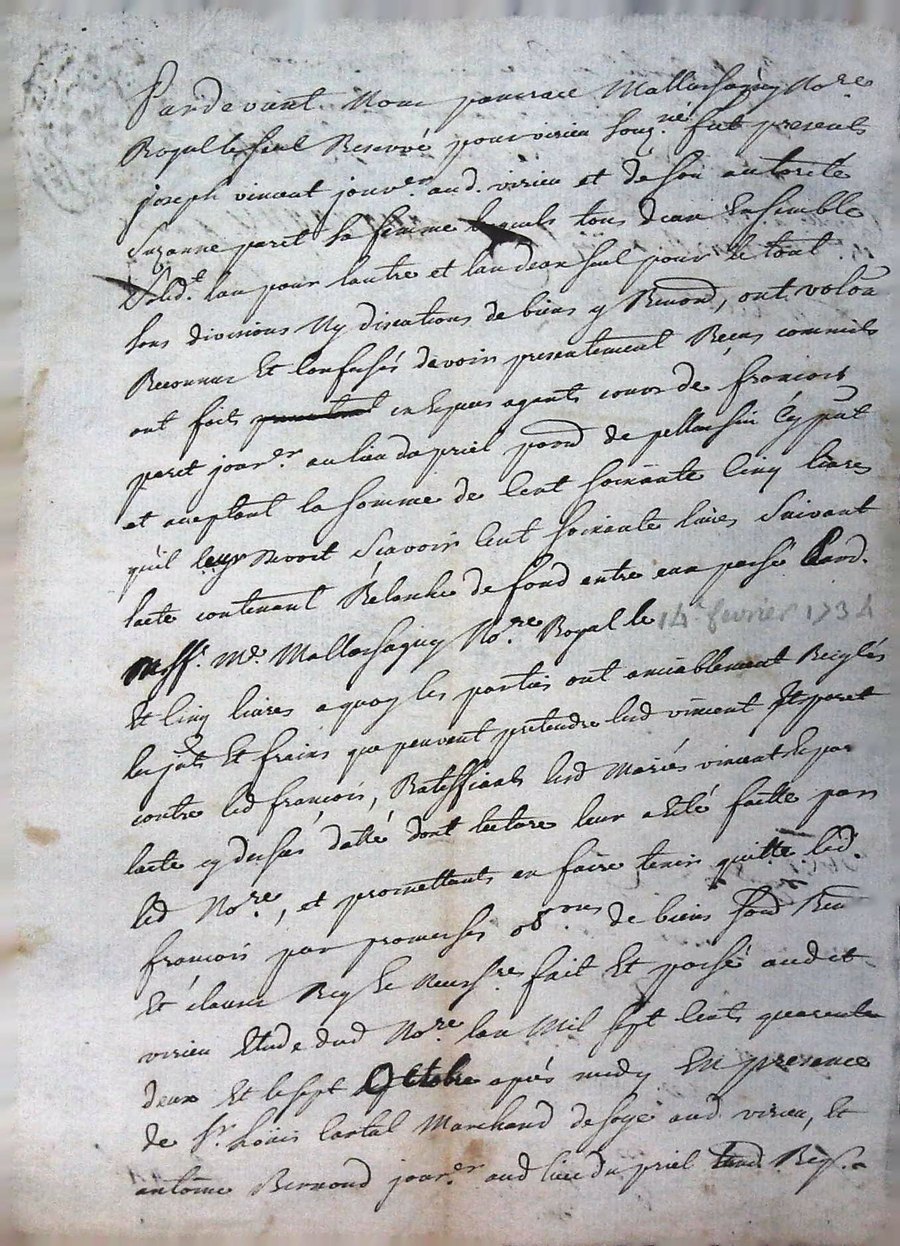 Pardevant Nous pancrace Mallassagny No.re
Royal le seul Reservé pour virieu souz.né fut presents
joseph vincent jour.er aud. virieu et de son autorité
Suzanne paret sa femme lesquels tous deux Ensemble
Solid.t l'un pour lautre et lun deux seul pour le tout
sans divisions Ny discutions de biens y Renond, ont volon
Reconnus Et Confessés davoir presentement Reçus comme ils
ont fait en Espece argents cours de francois
paret jour.er au lieu du priel parr.d de pellussin Cy pnt
et aceptant la somme de Cent soixante Cinq livres
quil leur devoit Scavoir Cent soixante livres Suivant
lacte contenant Relachie de fond entre eux passé pard.
M.e Mallassagny No.re Royal le 14e fevrier 1734
Et Cinq livres a quoy les parties ont amiablement Reiglés
les jnts Et fraix que peuvent pretendre lesd vincent Et paret
contre led francois, Ratiffiants lesd Mariés vincent Et par
lacte cy dessus datté dont lecture leur a Eté faitte par
led No.re, et promettants en faire tenir quitte led.
francois par promesses ob.ons de biens
Et clauses fait Et passé audit
virieu Etude dud No.re lan Mil sept Cents quarente
deux Et le sept Octobre après midy En presence
de Sr. Loüis Cartal Marchand de soye aud virieu, Et
antoine Bernond jour.er aud lieu du priel